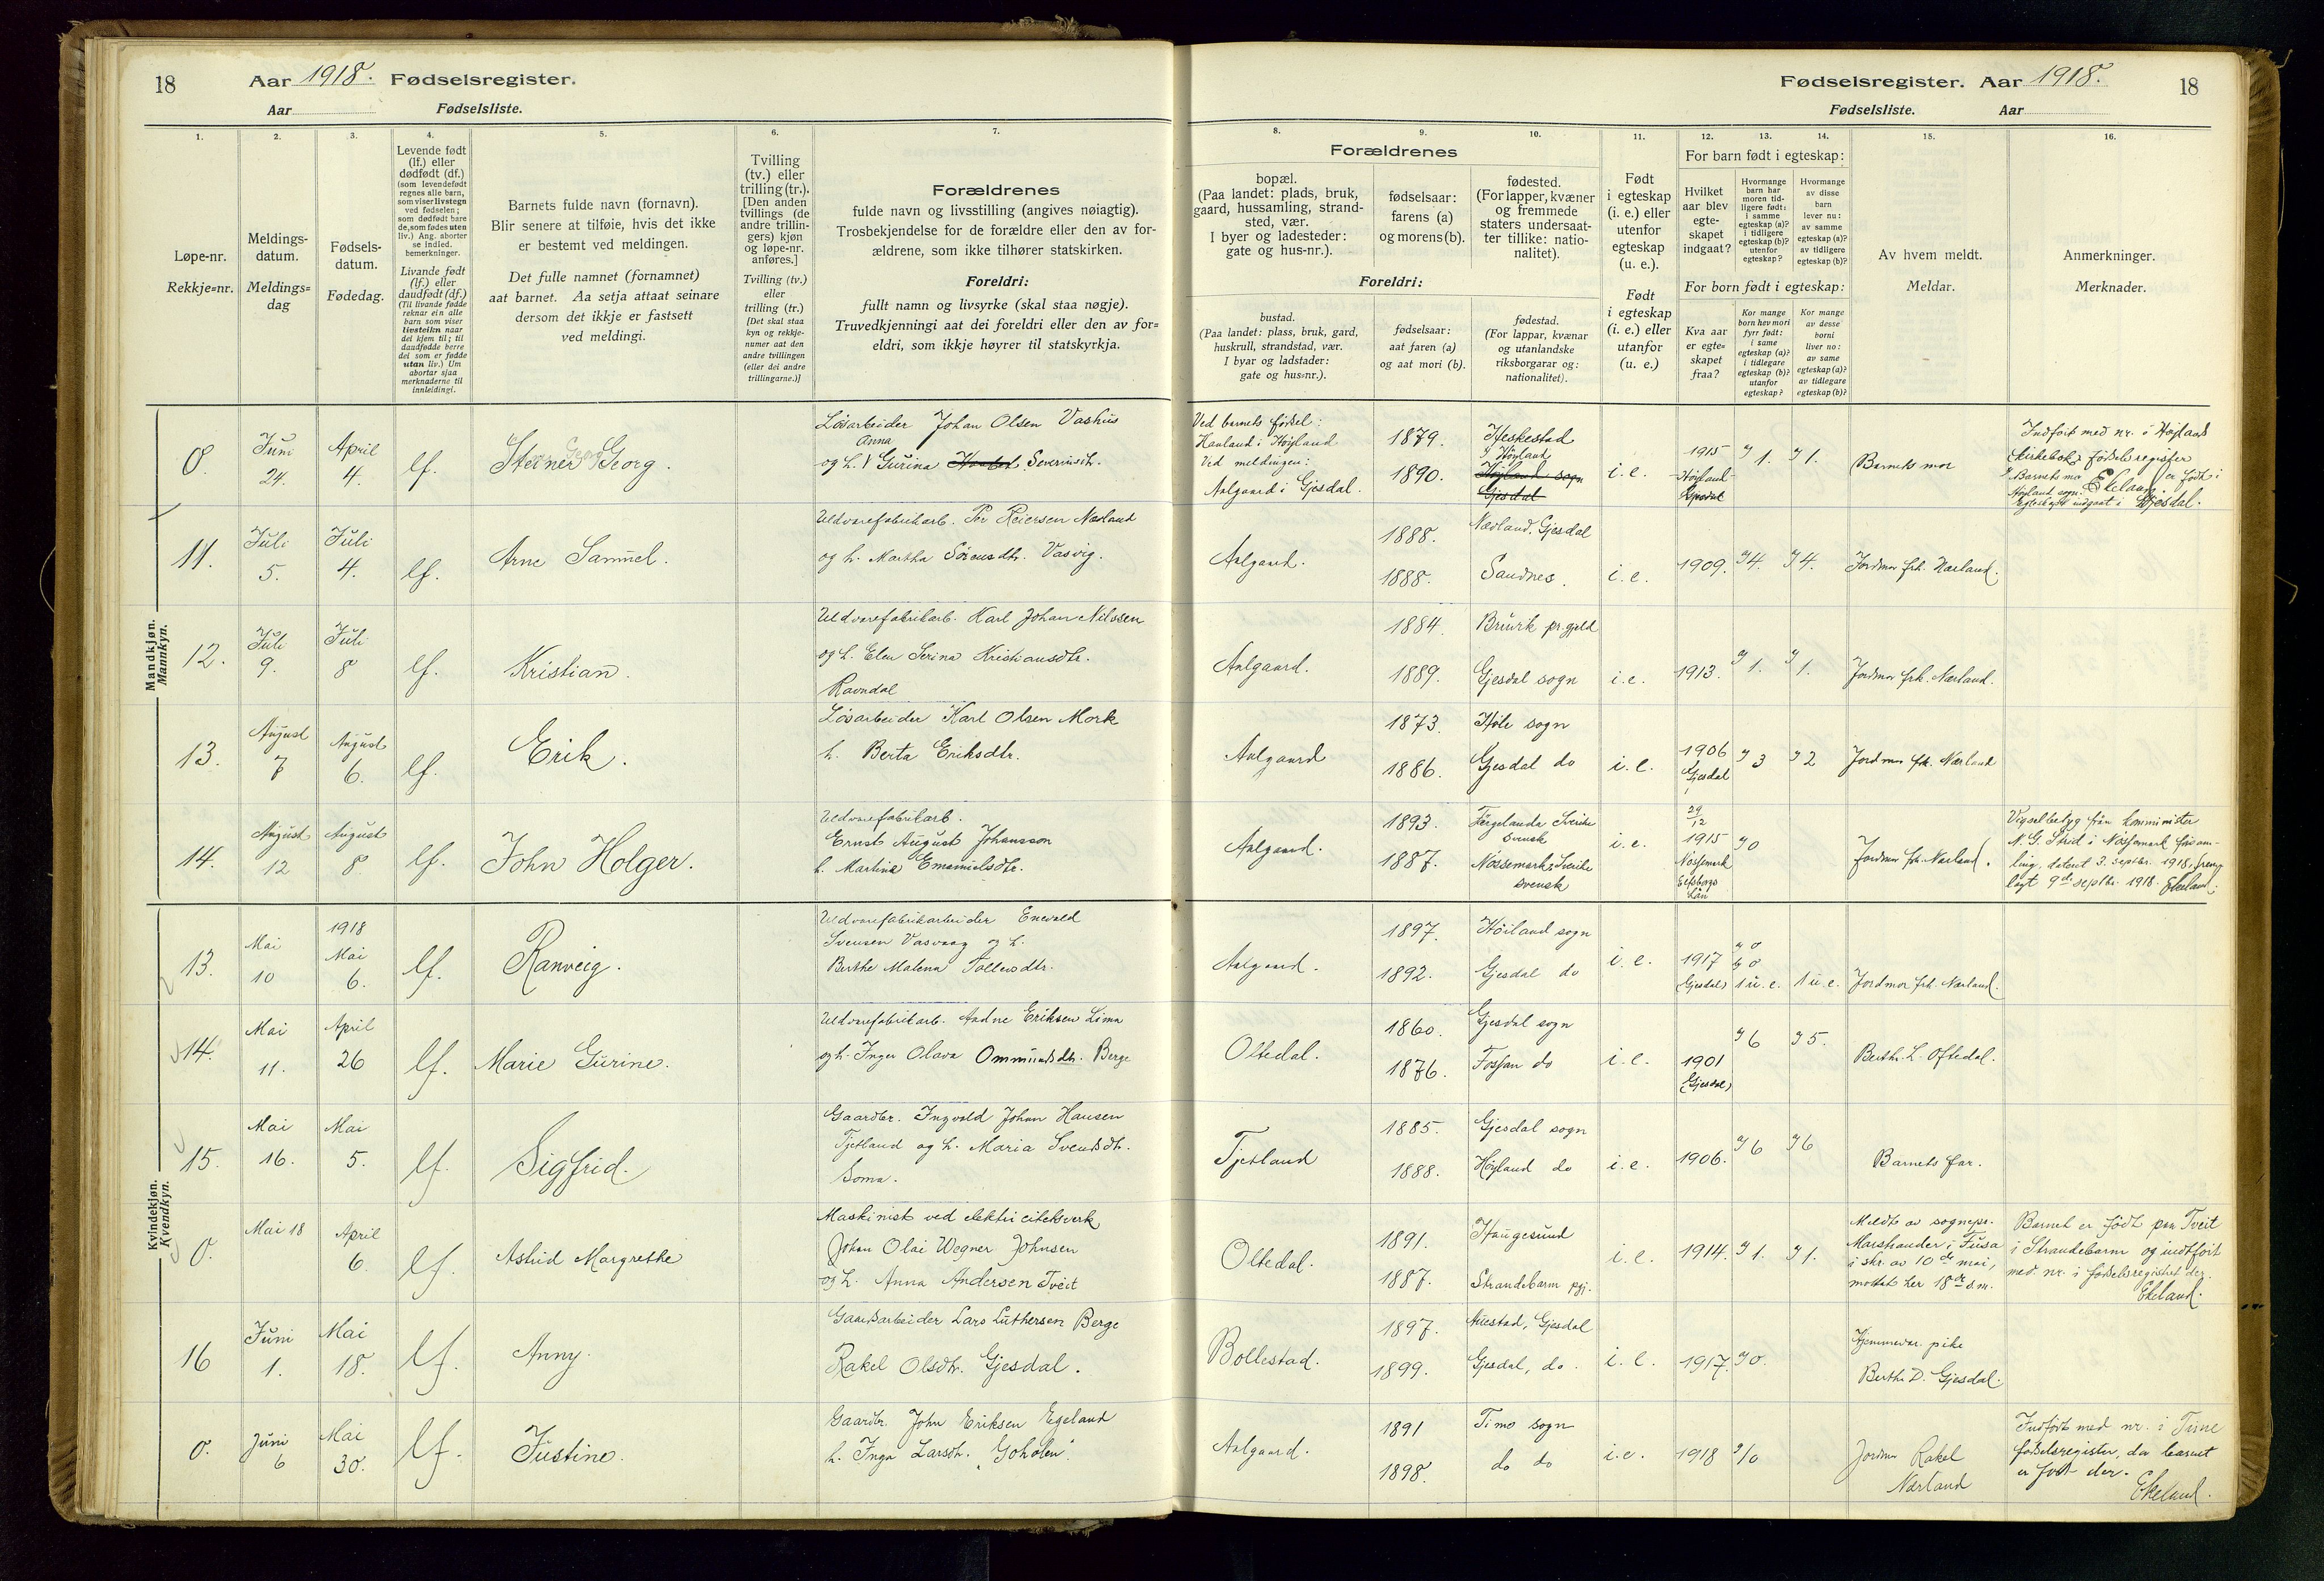 18 Aar 1918. Fødselsregister.
Aar Fødselsliste.
Fødselsregister. Aar 1918. 18
Fødselsliste. Aar
1.
Løpe-nr.
Rekkje=nr.
2.
Meldings-
datum.
Meldings=
dag
3.
Fødsels-
datum.
Fødedag.
4.
Levende født
(lf.) eller
dødfødt (df.)
(som levendefødt
regnes alle barn,
som viser livstegn
ved fødselen;
som dødfødt bare
de, som fødes uten
liv.) Ang. aborter
se indled.
bemerkninger.
Livande født
(lf.) eller
daudfødt (df.)
(Til livande fødde
reknar ein alle
barn som viser
livsteikn naar
dei kjem til; til
daudfødde berre
dei som er fødde
utan liv.) Um
abortar sjaa
merknaderne til
innleidingi.
5.
Barnets fulde navn (fornavn).
Blir senere at tilføie, hvis det ikke
er bestemt ved meldingen.
Det fulle namnet (fornamnet)
aat barnet. Aa setja attaat seinare
dersom det ikkje er fastsett
ved meldingi.
6.
Tvilling
(tv.) eller
trilling (tr.).
[Den anden
tvillings (de
andre trillin-
gers) kjøn
og løpe-nr.
anføres.]
Tvilling (tv.)
eller
trilling (tr.)
[Det skal staa
kyn og rekkje-
numer aat den
andre tvillingen
(eller dei andre
trillingarne.)]
7.
Forældrenes
fulde navn og livsstilling (angives nøiagtig).
Trosbekjendelse for de forældre eller den av for-
ældrene, som ikke tilhører statskirken.
Foreldri:
fullt namn og livsyrke (skal staa nøgje).
Truvedkjenningi aat dei foreldri eller den av for=
eldri, som ikkje høyrer til statskyrkja.
Forældrenes
8.
bopæl.
(Paa landet: plads, bruk,
gaard, hussamling, strand-
sted, vær.
I byer og ladesteder:
gate og hus-nr.).
Foreldri:
bustad.
(Paa landet: plass, bruk, gard,
huskrull, strandstad, vær.
I byar og ladstader:
gate og hus=nr.).
9.
fødselsaar:
farens (a)
og morens (b).
fødselsaar:
aat faren (a)
og aat mori (b).
10.
fødested.
(For lapper, kvæner
og fremmede
staters undersaat-
ter tillike: natio-
nalitet).
fødestad.
(For lappar, kvænar
og utanlandske
riksborgarar og:
nationalitet).
11.
Født
i egteskap
(i. e.) eller
utenfor
egteskap
(u. e.).
Født
i egteskap
(i. e.) eller
utanfor
(u. e.)
For barn født i egteskap:
12.
Hvilket
aar blev
egte-
skapet
indgaat?
For born født i egteskap:
Kva aar
er egte=
skapet
fraa?
13.
Hvormange
barn har
moren tid-
ligere født:
i samme
egteskap (a)?
i tidligere
egteskap (b)?
utenfor
egteskap?
Kor mange
born hev mori
fyrr født:
i same
egteskap (a)?
i tidlegare
egteskap (b)?
utanfor
egteskap?
14.
Hvormange
av disse
barn
lever nu:
av samme
egteskap (a)?
av tidligere
egteskap (b)?
Kor mange
av desse
borni
liver no:
av same
egteskap (a)?
av tidlegare
egteskap (b)?
15.
Av hvem meldt.
Meldar.
16.
Anmerkninger.
Merknader.
Mandkjøn.
Mannkyn.
0. Juni 24. April 4. lf. Steiner Georg.
Løsarbeider Johan Olsen Vashus
Anna
og h. Gurina Severinsdtr.
Ved barnets fødsel:
Hanland i Høiland
Ved meldingen:
Aalgaard i Gjesdal.
1879. 1890.
Heskestad
Høiland
Høiland sogn
Gjesdal
i. e. 1915 Høiland Gjesdal 1. 1. Barnets mor
Indført med nr. i Høilands
kirkeboks fødselsregister
Barnets mor er født i
Høiland sogn. Ekeland
egteskapet indgaat i Gjesdal.
11. Juli 5. Juli 4. lf. Arne Samuel.
Uldvarefabrikarb. Per Reiersen Nærland
og h. Martha Sørensdtr. Vasvig.
Aalgaard. 1888. 1888. Nærland, Gjesdal
Sandnes. i. e. 1909. 4. 4. Jordmor frk. Nærland.
12. Juli 9. Juli 8 lf. Kristian.
Uldvarefabrikarb. Karl Johan Nilssen
og h. Elen Serina Kristiansdtr.
Ravndal
Aalgaard. 1884. 1889. pr.gjeld
Gjesdal sogn i. e. 1913. 1. 1. Jordmor frk. Nærland.
13. August 7 August 6. lf. Erik.
Løsarbeider Karl Olsen Mork
h. Berta Eriksdtr.
Aalgaard 1873. 1886. Høle sogn
Gjesdal do i. e. 1906 Gjesdal 3 2 Jordmor frk. Nærland
14. August 12 August 8. lf. John Holger.
Uldvarefabrikarb.
Ernst August Johansson
h. Martina Emanuelsdtr.
Aalgaard. 1893. 1887. Färgelanda Sverike
svensk
Nössemark, Sverike
svensk
i. e. 29/12 1915 Nössemark Elfsborgs Län 0 Jordmor frk. Nærland.
Vigselbetyg från komminister
N. G. Strid i Nössemark försam-
ling, datert 3. septbr. 1918, frem-
lagt 9de septbr. 1918. Ekeland.
Kvindekjøn.
Kvendkyn.
13. Mai 10 1918 Mai 6. lf. Ranveig.
Uldvarefabrikarbeider Enevald
Svensen Vasvaag og h.
Berthe Malena Tollevsdtr.
Aalgaard. 1897. 1892. Høiland sogn
Gjesdal do i. e. 1917 (Gjesdal) 0 0 1 u. e. 1 u. e. Jordmor frk. Nærland.
14. Mai 11. April 26 lf. Marie Gurine.
Uldvarefabrikarb. Aadne Eriksen Lima
og h. Inger Olava Ommundsdtr. Berge
Oltedal. 1860. 1876. Gjesdal sogn
Fossan do i. e. 1901 (Gjesdal) 6 5. Berthe L. Oftedal.
15. Mai 16. Mai 5. lf. Sigfrid.
Gaardbr. Ingvald Johan Hansen
Tjetland og h. Maria Svendsdtr.
Soma.
Tjetland 1885. 1888. Gjesdal sogn
Høyland do i. e. 1906. 6 6 Barnets far.
0. Mai 18 April 6. lf. Astrid Margrethe
Maskinist ved elektricitetsverk
Johan Olai Wegner Johnsen
og h. Anna Andersen Tveit
Oltedal. 1891. 1887. Haugesund
Strandebarm pgj. i. e. 1914. 1. 1.
Meldt av sognepr.
Marstrander i Fusa
i skr. av 10de mai,
mottat her 18de s.m.
Barnet er født paa Tveit
i Strandebarm og indført
med nr. i fødselsregistret der.
Ekeland.
16 Juni 1. Mai 18. lf. Anny.
Gaardsarbeider Lars Luthersen Berge
Rakel Olsdtr. Gjesdal.
Bollestad. 1897. 1899. Auestad, Gjesdal
Gjesdal, do. i. e. 1917. 0. Hjemmevær. pike
Berthe D. Gjesdal.
0. Juni 6 Mai 30. lf. Justine.
Gaardbr. John Eriksen Egeland
h. Inga Larsdtr. Goholen.
Aalgaard. 1891 1898. Time sogn
do do i. e. 1918 0 Jordmor Rakel
Nærland
Indført med nr. i Time
fødselsregister, da barnet
er født der.
Ekeland.